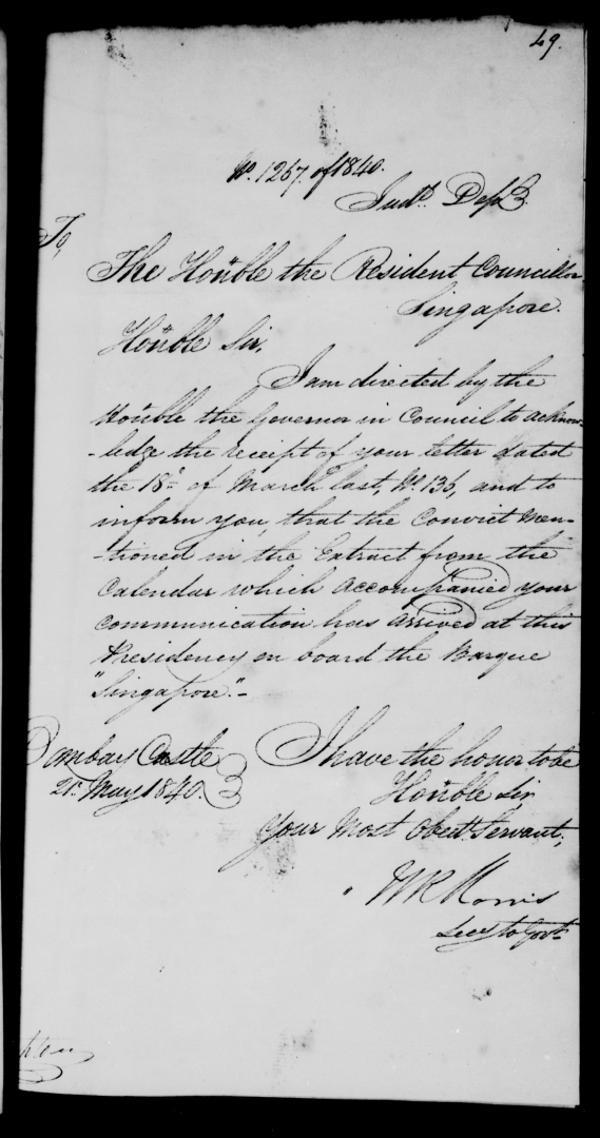 49.
No. 1267 of 1840.
Judl. Dept.
To,
The Honble the Resident Councillor
Singapore.
Honble Sir,
I am directed by the
Honble the Governor in Council to acknow-
-ledge the receipt of your letter dated
the 18th of March last, No. 136, and to
inform you, that the Convict men-
-tioned in the Extract from the
Calendar which accompanied your
communication has arrived at this
Presidency on board the Barque
"Singapore."-
Bombay Castle
21st May 1840.
I have the honor to be
Honble Sir,
Your Most Obedt. Servant,
W R Morris
Secy to Govt.